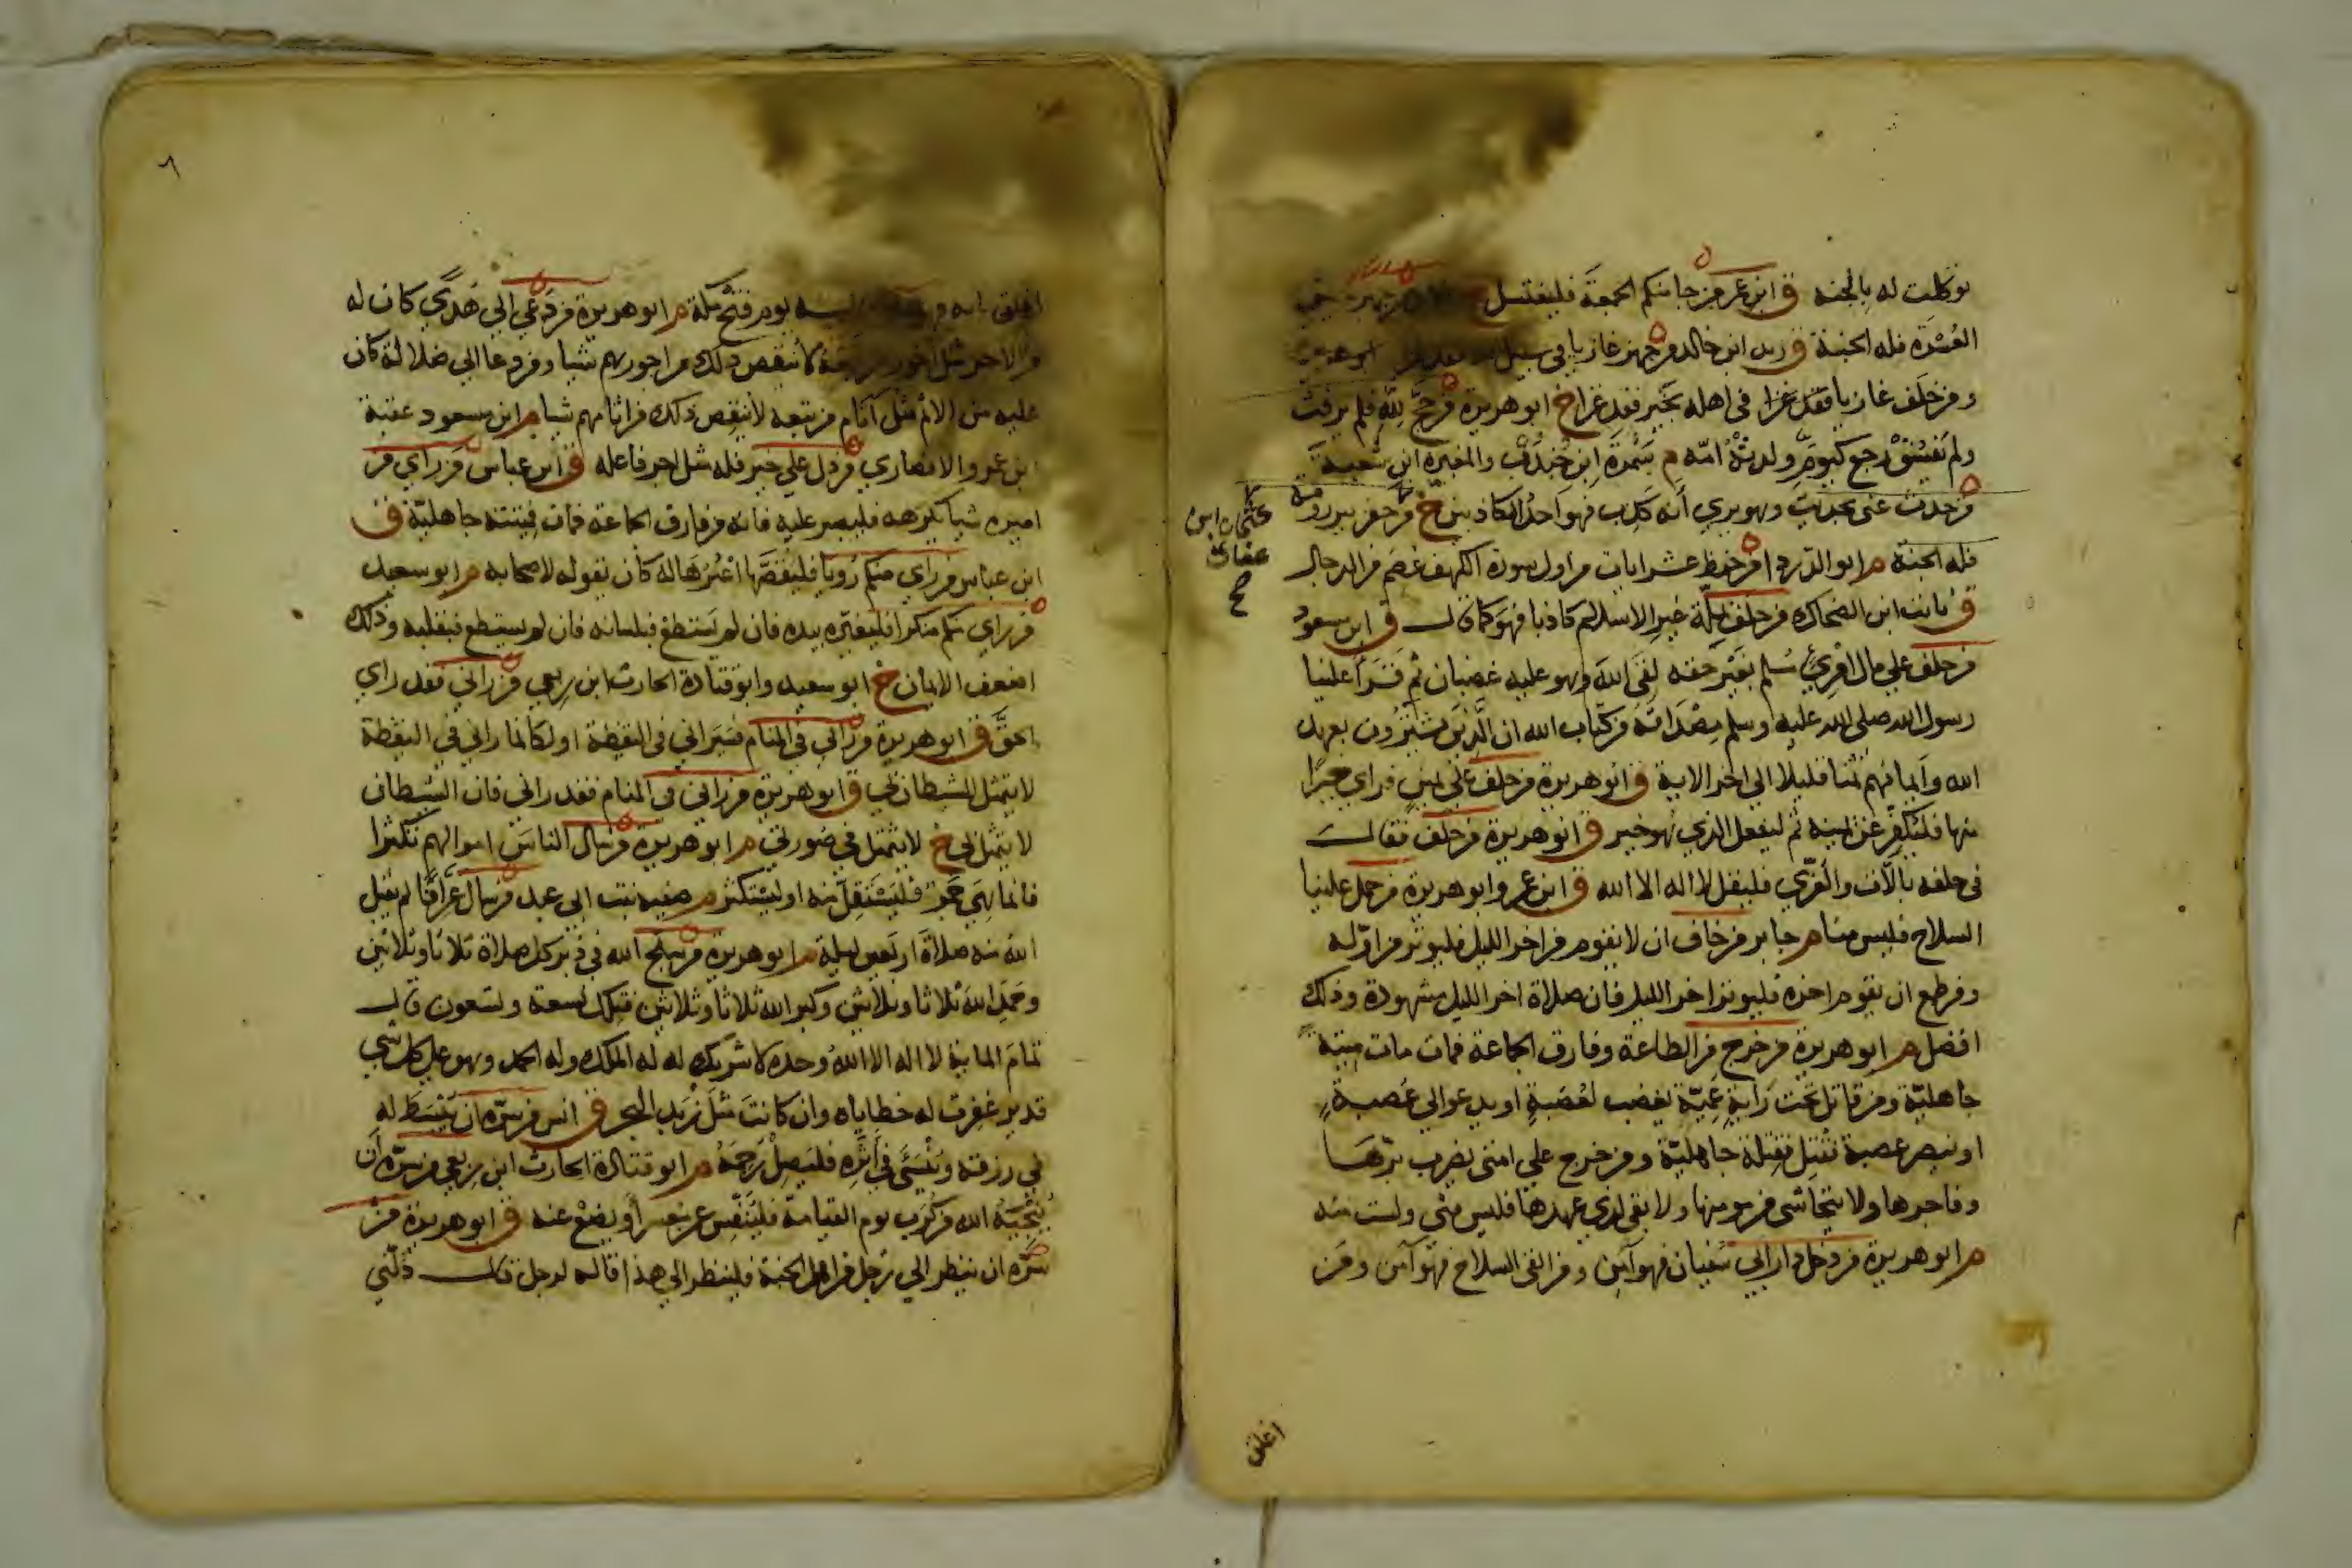 توكلت له بالجنة ق ابن عمر من جا منكم الجمعة فليغتسل
العسرة فله الجنة ق زيد ابن خالد من جهز غازيا في سبيل
ومن خلف غازيا فقد غزا في اهله بخير فقد غزا خ ابو هريرة من حج لله فلم يرفث
ولم يفسق رجع كيوم ولدته امه م سمرة ابن جندب والمغيرة ابن شعبة
من حدث عني بحديث وهو يري انه كذب فهو احد الكاذبين خ من حفر بير رومة
عثمان ابن
عفان
فله الجنة م ابو الدردا من حفظ عشر ايات من اول سورة الكهف عصم من الدجال
ق ثابت ابن الضحاك من حلف بملة غير الاسلام كاذبا فهو كما قال ق ابن مسعود
من حلف علي مال امري مسلم بغير حقه لقي الله وهو عليه غضبان ثم قرأ علينا
رسول الله صلى الله عليه وسلم مصداقه من كتاب الله ان الذين يشترون بعهد
الله وايمانهم ثمنا قليلا الي اخر الاية ق ابو هريرة من حلف علي يمين فراي خيرا
منها فليكفر عن يمينه ثم ليفعل الذي هو خير ق ابو هريرة من حلف فقال
في حلفه باللات والعزي فليقل لا اله الا الله ق ابن عمر وابو هريرة من حمل علينا
السلاح فليس منا م جابر من خاف ان لا يقوم من اخر الليل فليوتر من اوله
ومن طمع ان يقوم اخره فليوتر اخر الليل فان صلاة اخر الليل مشهودة وذلك
افضل م ابو هريرة من خرج من الطاعة وفارق الجماعة فمات مات ميتة
جاهلية ومن قاتل تحت راية عمية يغضب لعصبة او يدعو الي عصبة
او ينصر عصبة فقتل فقتلة جاهلية ومن خرج علي امتي يضرب برها
وفاجرها ولا يتحاشي من مومنها ولا يفي لذي عهدها فليس مني ولست منه
م ابو هريرة من دخل دار ابي سفيان فهو آمن ومن القي السلاح فهو آمن ومن
اغلق
٦
اغلق بابه يوم فتح مكة م ابو هريرة من دعي الي هدي كان له
من الاجر مثل اجور من تبعه لا ينقص ذلك من اجورهم شيا ومن دعا الي ضلالة كان
عليه من الاثم مثل آثام من تبعه لا ينقص ذلك من اثامهم شيا م ابن مسعود عقبة
ابن عمرو الانصاري من دل علي خير فله مثل اجر فاعله ق ابن عباس من راي من
اميره شيا يكرهه فليصبر عليه فانه من فارق الجماعة فمات فميتته جاهلية ق
ابن عباس من راي منكم رويا فليقصها اعبرها له كان يقوله لاصحابه م ابو سعيد
من راي منكم منكرا فليغيره بيده فان لم يستطع فبلسانه فان لم يستطع فبقلبه وذلك
اضعف الايمان خ ابو سعيد وابو قتادة الحارث ابن ربعي من راني فقد راي
الحق ق ابو هريرة من راني في المنام فسيراني في اليقظة او لكانما راني في اليقظة
لا يتمثل الشيطان بي ق ابو هريرة من راني في المنام فقد راني فان الشيطان
لا يتمثل بي خ لا يتمثل في صورتي م ابو هريرة من سال الناس اموالهم تكثرا
فانما هي جمر فليستقل منه او ليستكثر م صفية بنت ابي عبيد من سال عرافا لم يقبل
الله منه صلاة اربعين ليلة م ابو هريرة من سبح الله في دبر كل صلاة ثلاثا وثلاثين
وحمد الله ثلاثا وثلاثين وكبر الله ثلاثا وثلاثين فتلك تسعة وتسعون قال
تمام المائة لا اله الا الله وحده لا شريك له له الملك وله الحمد وهو علي كل شي
قدير غفرت له خطاياه وان كانت مثل زبد البحر ق انس من سره ان يبسط له
في رزقه وينسئ في أثره فليصل رحمه م ابو قتادة الحارث ابن ربعي من سره ان
ينجيه الله من كرب يوم القيامة فلينفس عن معسر أو يضع عنه ق ابو هريرة من
سره ان ينظر الي رجل من اهل الجنة فلينظر الي هذا قاله لرجل قال دلني